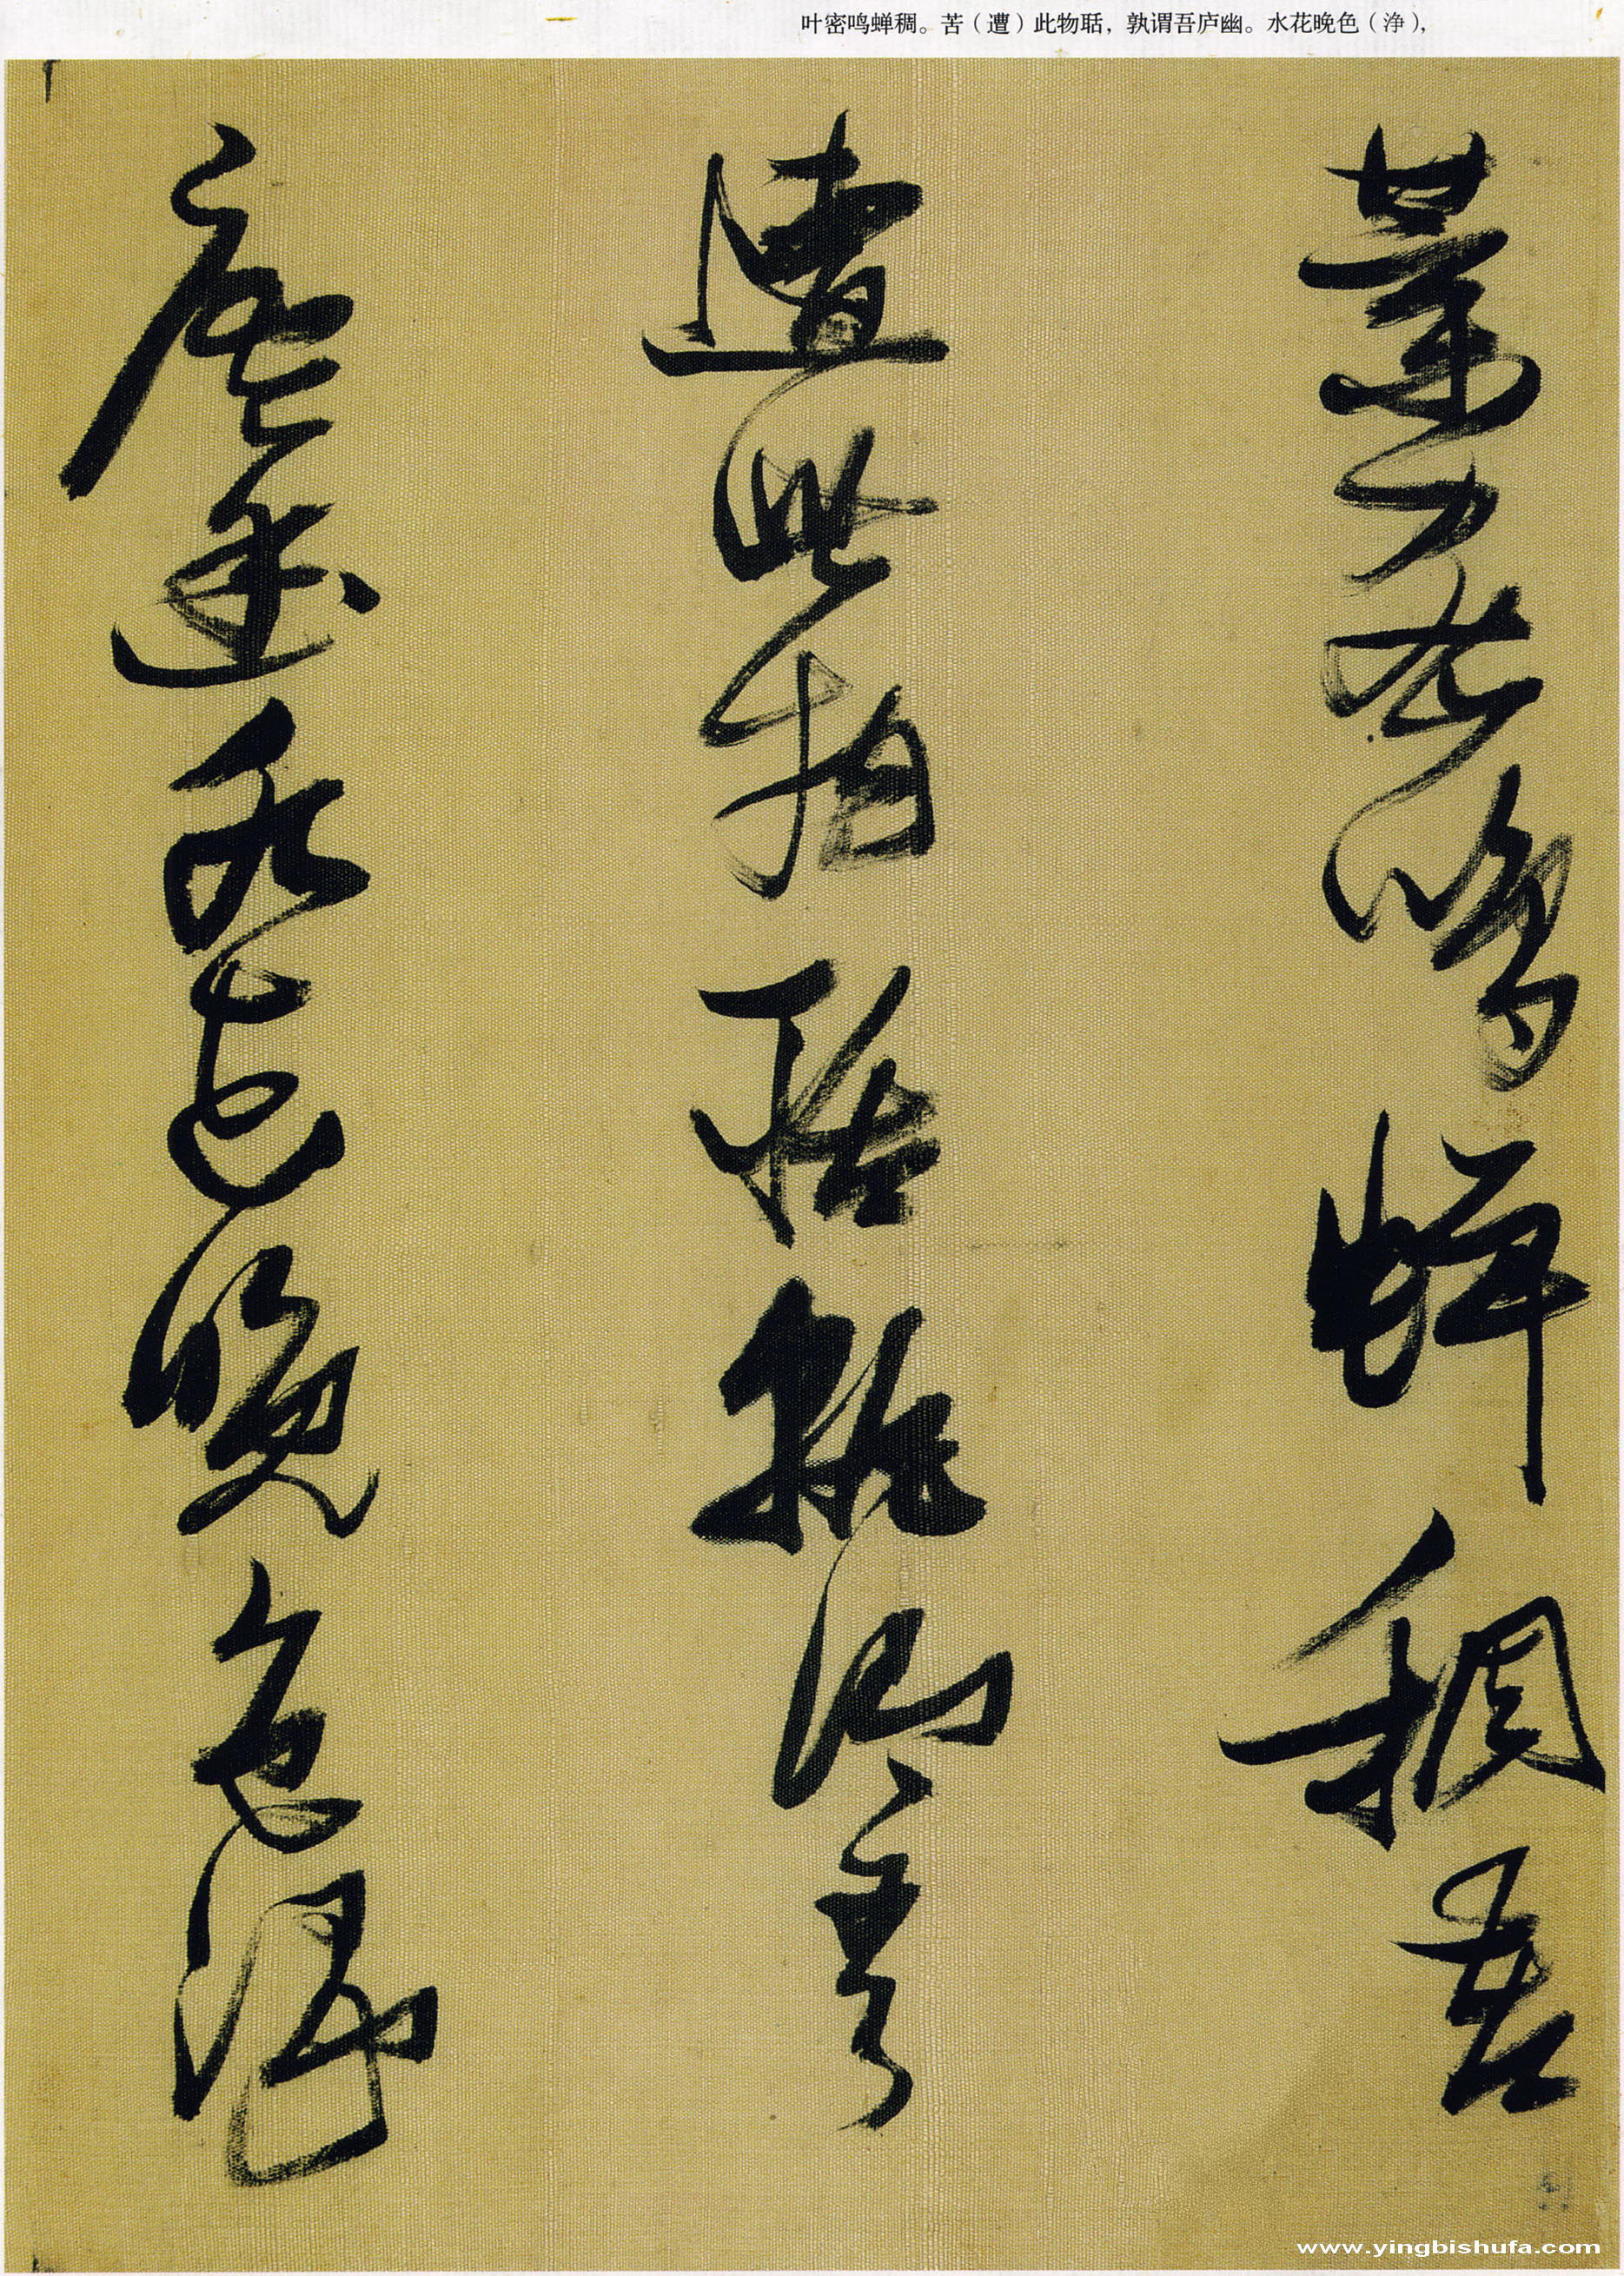 叶密鸣蝉稠。苦（遭）此物聒，孰谓吾庐幽。水花晚色（净），
葉密鳴蟬稠苦
遭此物聒孰謂吾
廬幽水花晚色淨
www.yingbishufa.com